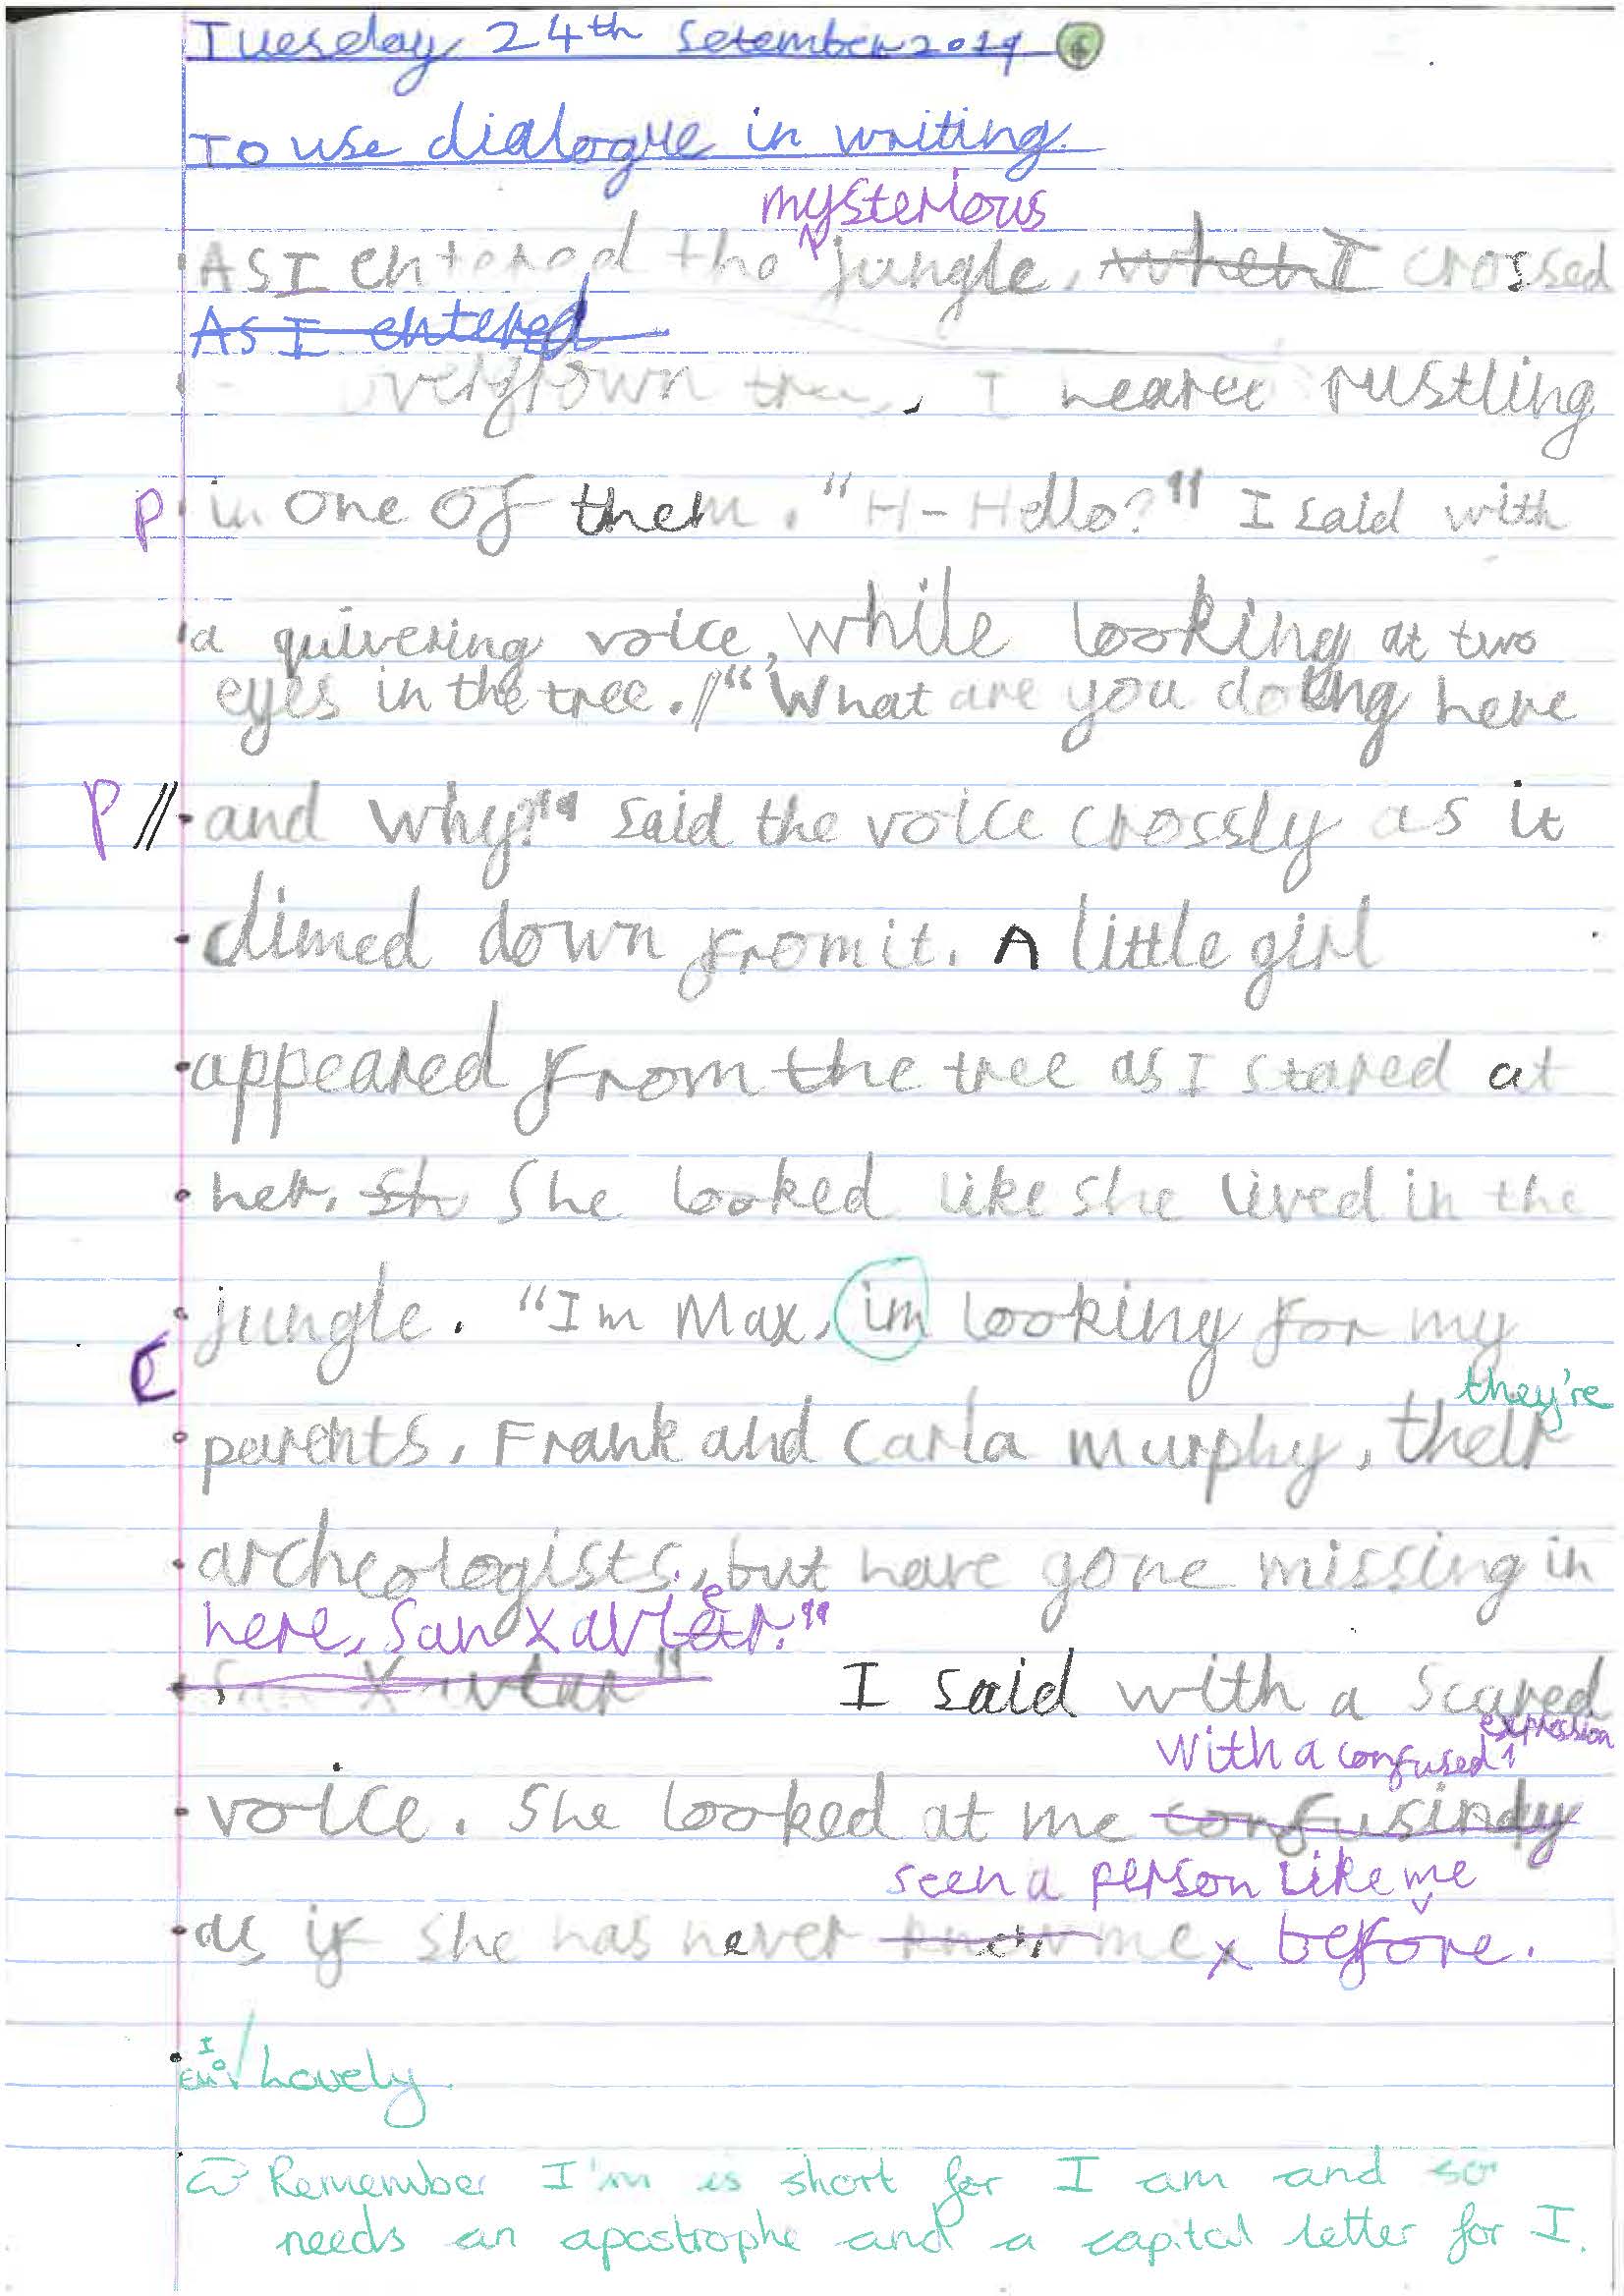 Tuesday 24th Setember 2019
To use dialogue in writing.
mysterious
As I entered the jungle, when I crossed
As I entered
overgrown tree, I heared rustling
P in one of them. "H-Hello?" I said with
a quivering voice, while looking at two
eyes in the tree. // "What are you doing here
P // and why?" said the voice crossly as it
climed down from it. A little girl
appeared from the tree as I stared at
her. Sh She looked like she lived in the
jungle. "Im Max, im looking for my
C
they're
parents, Frank and Carla Murphy, their
archeologists, but have gone missing in
here, San Xavier."
San Xaviar" I said with a scared
with a confused expression
voice. She looked at me confusindy
seen a person like me
as if she has never know me before.
I
Lovely.
Remember I'm is short for I am and so
needs an apostrophe and a capital letter for I.